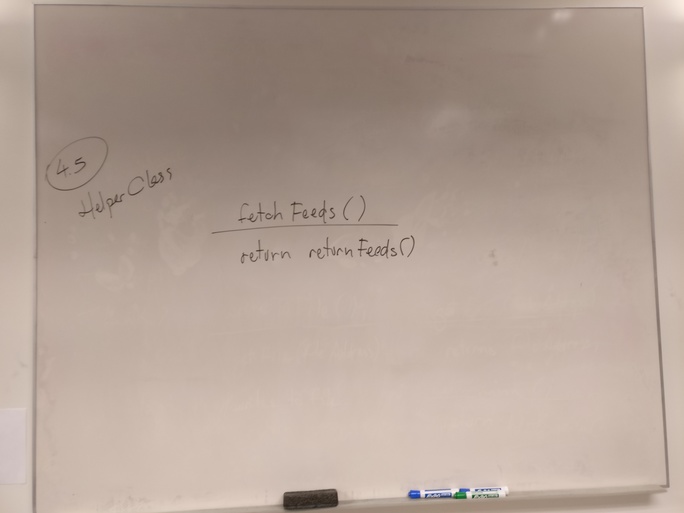 4.5
HelperClass
fetchFeeds()
return returnFeeds()